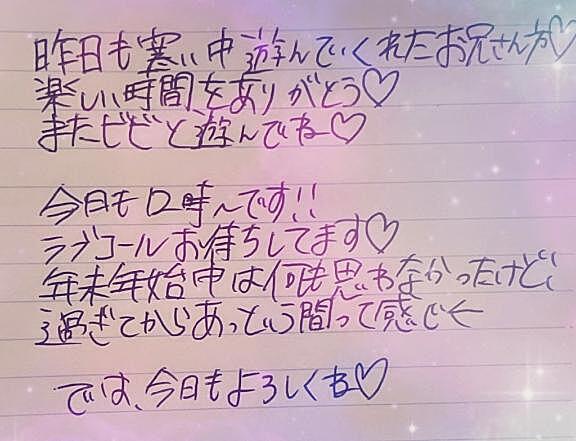 昨日も寒い中遊んでいくれたお兄さん方♡
楽しい時間をありがとう♡
またビビと遊んでね♡
今日も12時〜です!!
ラブコールお待ちしてます♡
年末年始中は何も思わなかったけど、
過ぎてからあっという間って感じ←
では、今日もよろしくね♡